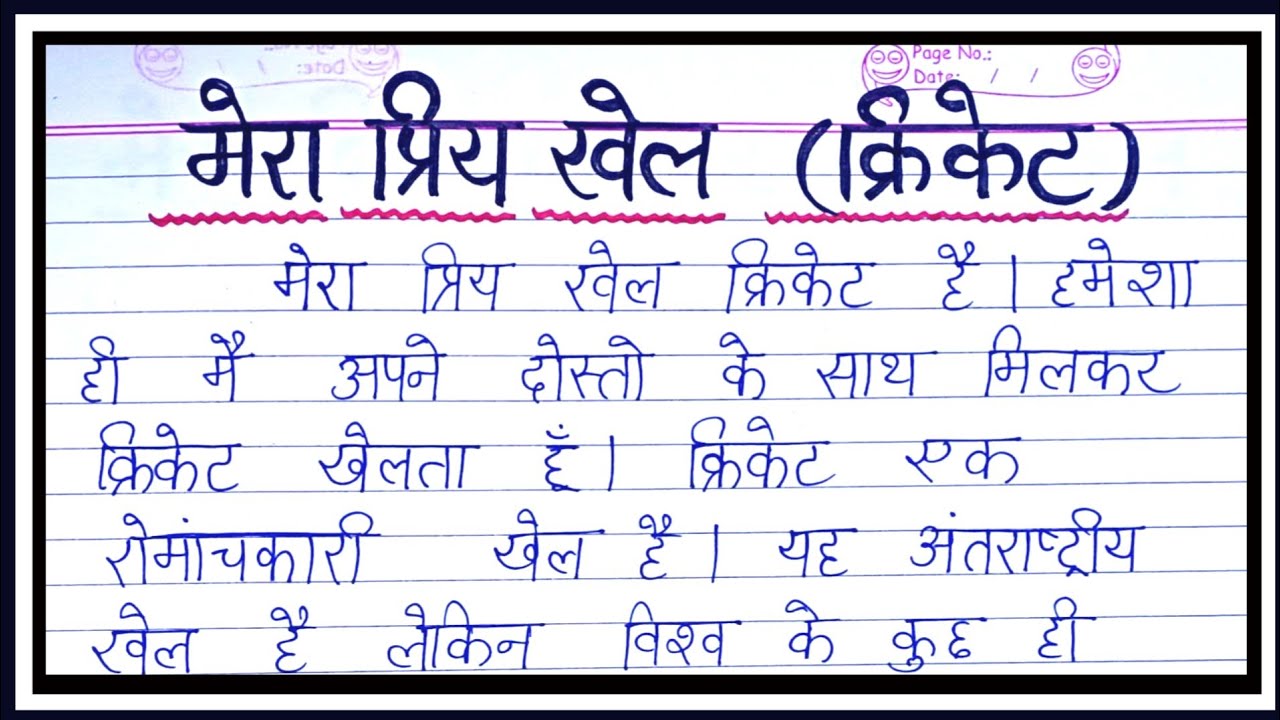 Page No.:
Date: / /
मेरा प्रिय खेल (क्रिकेट)
मेरा प्रिय खेल क्रिकेट है। हमेशा
ही मै अपने दोस्तो के साथ मिलकर
क्रिकेट खेलता हूँ। क्रिकेट एक
रोमांचकारी खेल है। यह अंतराष्ट्रीय
खेल है लेकिन विश्व के कुछ ही